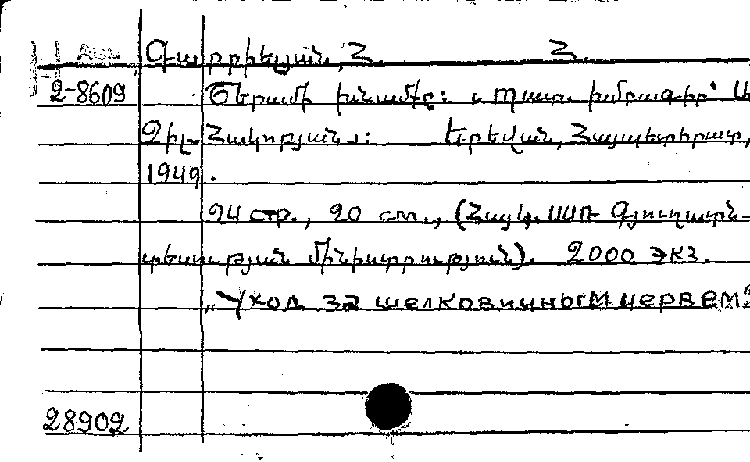 Գաբրիելյան, Հ. Հ.
2-8609 Շերամի խնամքը: Պատ. խմբագիր՝ Ա
Ջիլ-Հակոբյան։ Երևան, Հայպետհրատ,
1949.
24 стр., 20 см., (Հայկ. ՍՍՌ Գյուղատն-
տեսության մինիստրություն). 2000 экз.
„Уход за шелковичным червем"
28902